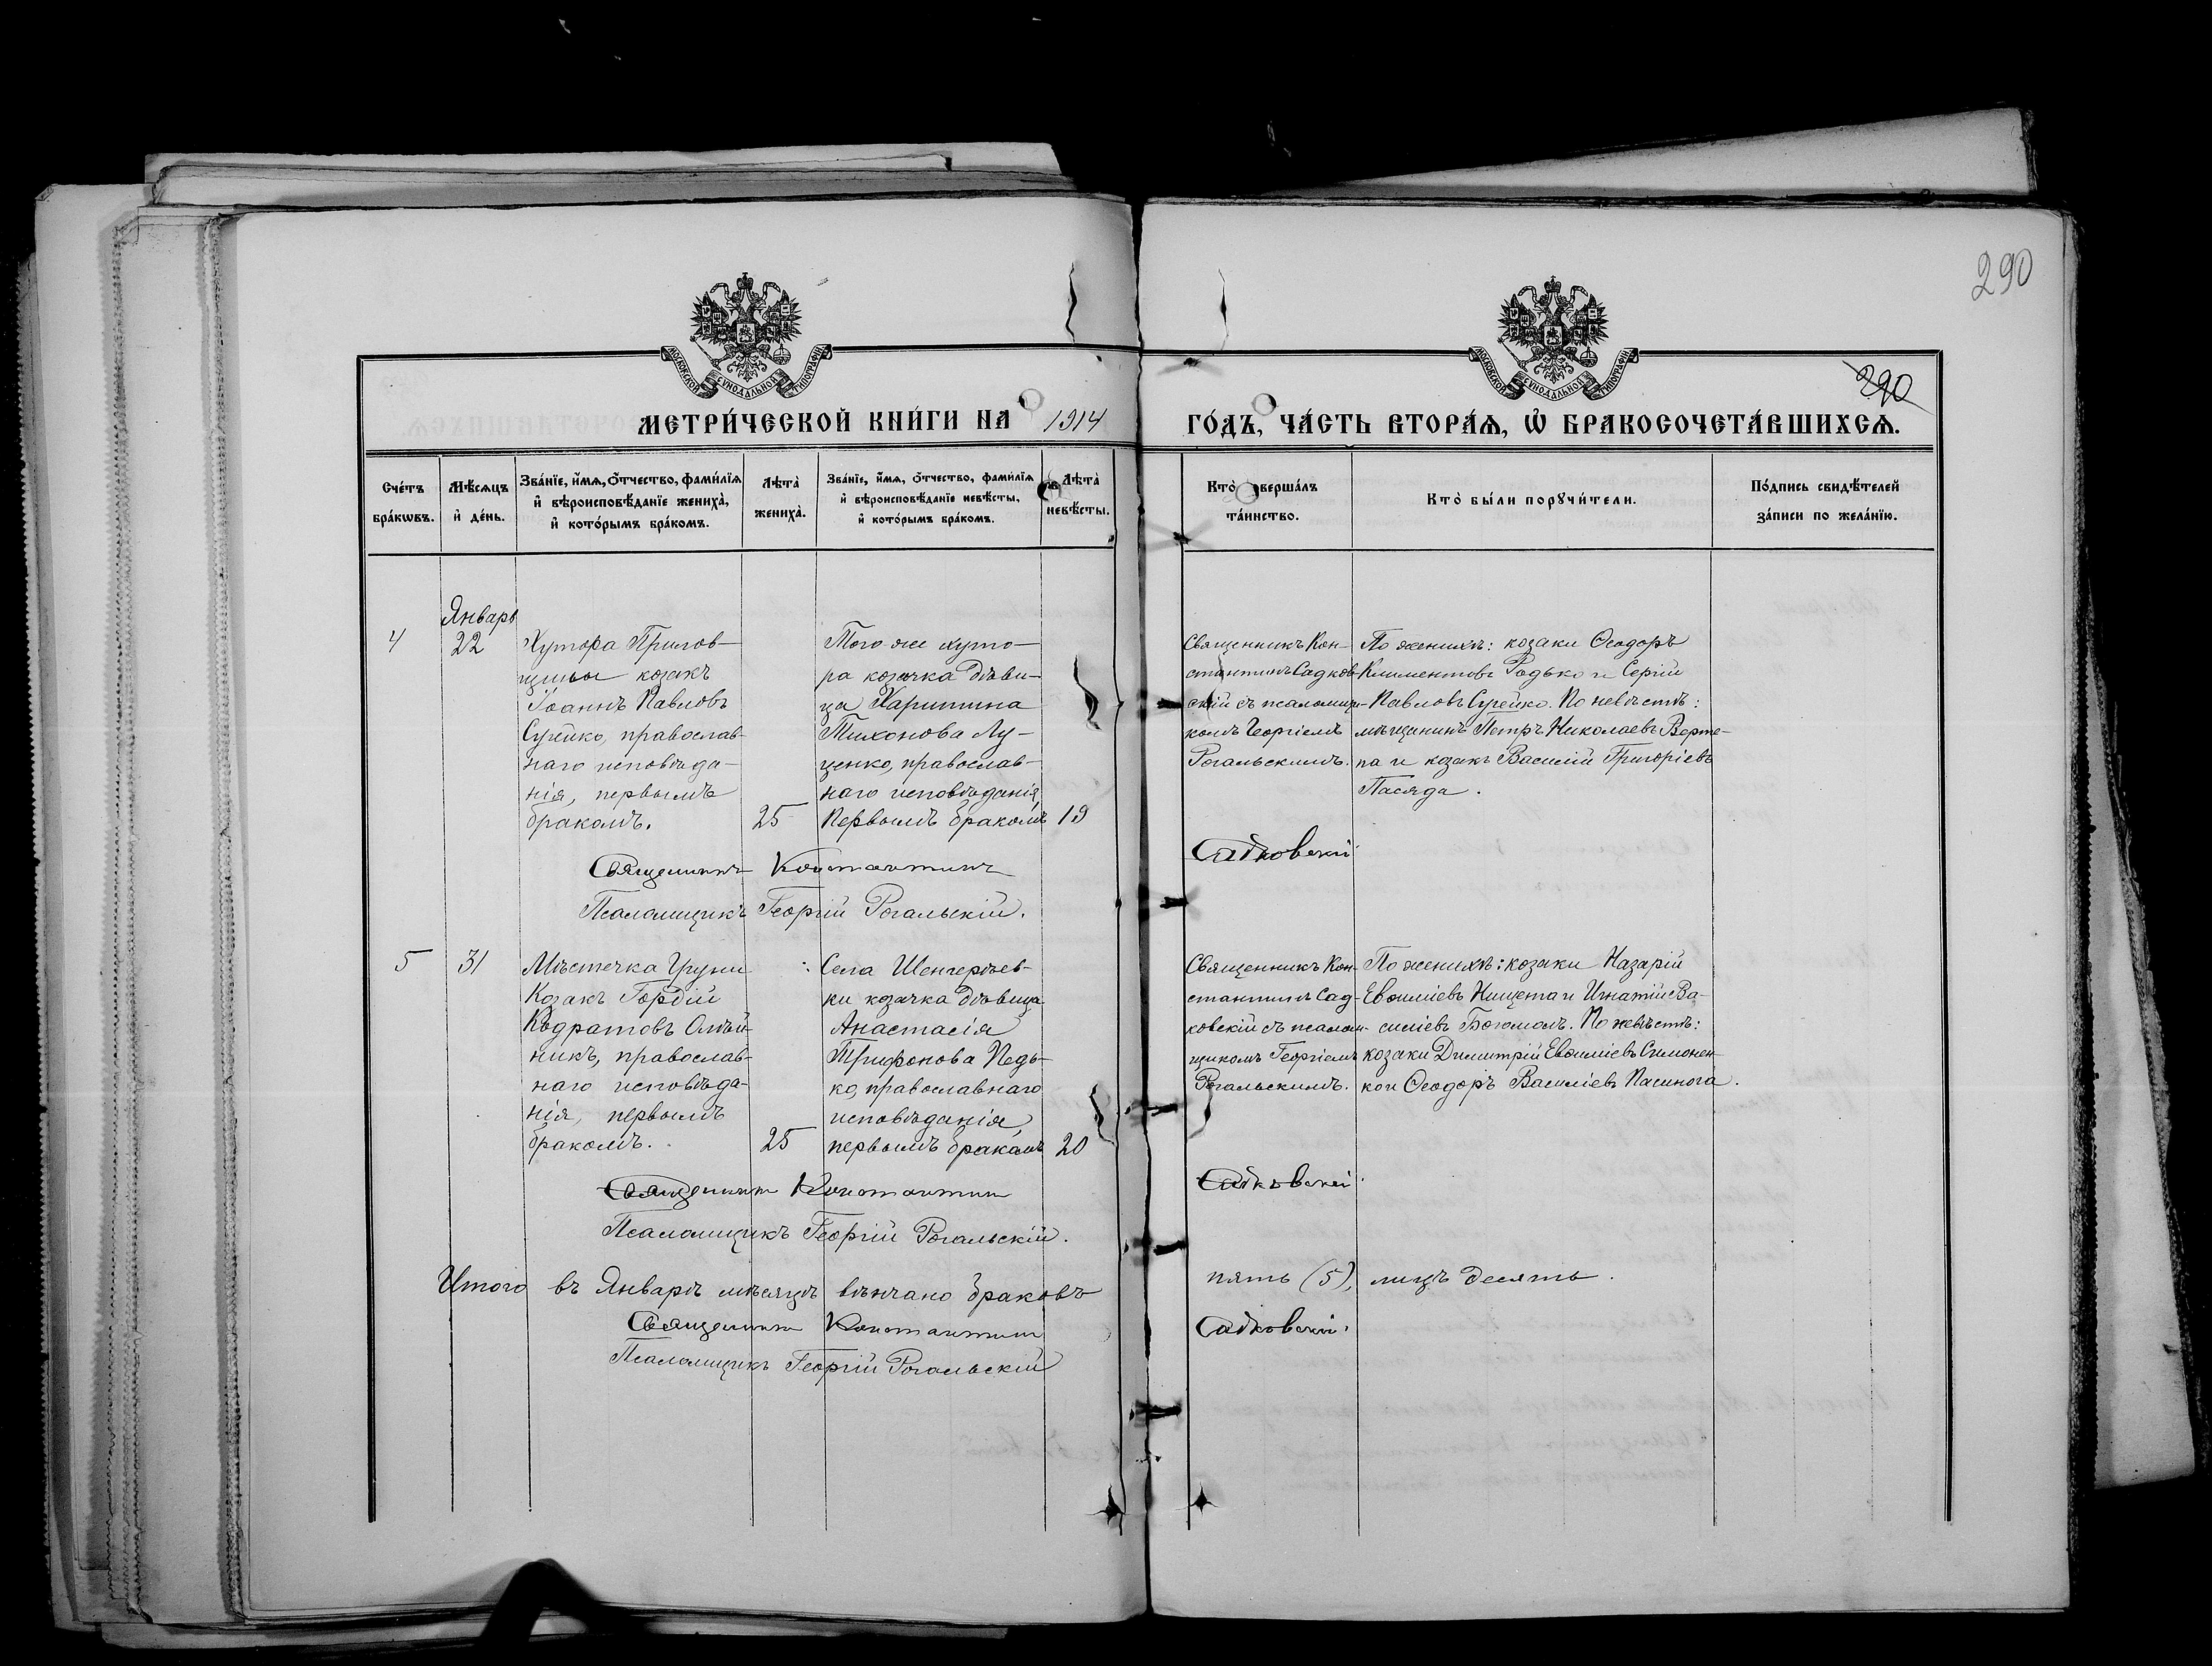 290
МОСКОВСКОЙ СѴНОДАЛЬНОЙ ТИПОГРАФІИ
МОСКОВСКОЙ СѴНОДАЛЬНОЙ ТИПОГРАФІИ
290
МЕТРИ́ЧЕСКОЙ КНИ́ГИ НА 1914 ГО́ДЪ, ЧА́СТЬ ВТОРА́Ѧ, Ѡ БРАКОСОЧЕТА́ВШИХСѦ.
Сче́тъ
бра́кѡвъ.
Мѣ́сяцъ
и҆ де́нь.
Зва́нїе, и҆́мя, ѻ҆́тчество, фами́лїя
и҆ вѣроисповѣ́данїе жениха̀,
и҆ кото́рымъ бра́комъ.
Лѣта̀
жениха̀.
Зва́нїе, и҆́мя, ѻ҆́тчество, фами́лїя
и҆ вѣроисповѣ́данїе невѣ́сты,
и҆ кото́рымъ бра́комъ.
Лѣта̀
невѣ́сты.
Кто̀ вершáлъ
та́инство.
Кто̀ бы́ли порꙋчи́тели.
По́дпись свидѣ́телей
за́писи по жела́нїю.
Январь
4
22
Хутора
козакъ
Іоаннъ Павловъ
Сугейко, православ-
наго исповѣда-
нія, первымъ
бракомъ.
25
Того-же хуто-
ра козачка дѣви-
ца Харитина
Тихонова Лу-
ценко, православ-
наго исповѣданія,
первымъ бракомъ
19
Священникъ Кон-
стантинъ Садков-
скій съ псаломщи-
комъ Георгіемъ
Рогальскимъ.
По женихѣ: козаки Ѳеодоръ
Климентовъ Родько и Сергій
Павловъ Сугейко. По невѣстѣ:
мѣщанинъ Петръ Николаевъ Верте-
па и козакъ Василій Григоріевъ
Пасяда.
Священникъ Константинъ Садковскій
Псаломщикъ Георгій Рогальскій.
5
31
Мѣстечка Груни
Козакъ Гордій
Кодратовъ Олѣй-
никъ, православ-
наго исповѣда-
нія, первымъ
бракомъ.
25
Села Шенгерѣев-
ки козачка дѣвица
Анастасія
Трифонова Педь-
ко, православнаго
исповѣданія,
первымъ бракомъ
20
Священникъ Кон-
стантинъ Сад-
ковскій съ псалом-
щикомъ Георгіемъ
Рогальскимъ.
По женихѣ: козаки Назарій
Евѳиміевъ Нищета и Игнатій Ва-
силіевъ Богомолъ. По невѣстѣ:
козаки Димитрій Евѳиміевъ Симонен-
ко и Ѳеодоръ Василіевъ Пасинога.
Священникъ Константинъ Садковскій.
Псаломщикъ Георгій Рогальскій.
Итого въ Январѣ мѣсяцѣ вѣнчано браковъ пять (5), лицъ десять.
Священникъ Константинъ Садковскій.
Псаломщикъ Георгій Рогальскій